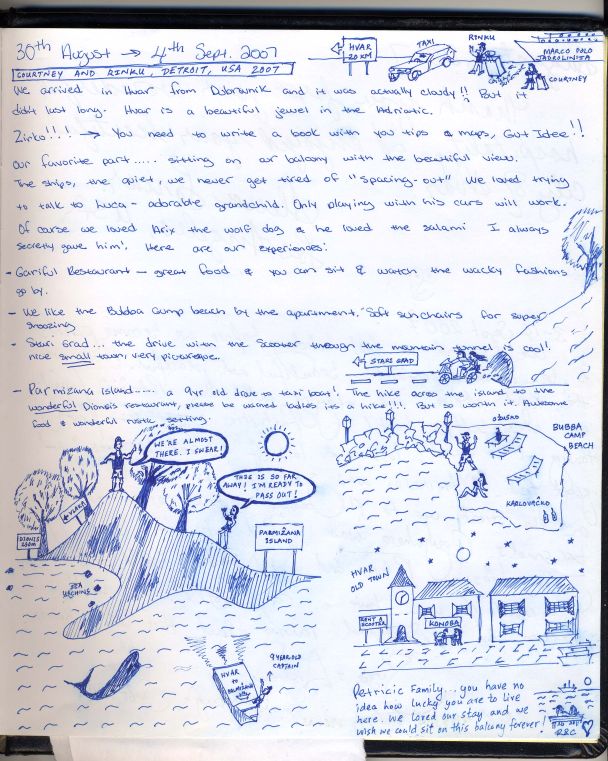 30th August → 4th Sept. 2007
COURTNEY AND RINKU, DETROIT, USA 2007
HVAR
20 KM
TAXI
RINKU
MARCO POLO
JADROLINIJA
COURTNEY
We arrived in Hvar from Dubrovnik and it was actually cloudy!! But it
didn't last long. Hvar is a beautiful jewel in the Adriatic.
Zirko!!! → You need to write a book with you tips & maps, Gut Idee!!
Our favorite part..... sitting on our balcony with the beautiful view.
The ships, the quiet, we never get tired of "spacing-out" We loved trying
to talk to Luca - adorable grandchild. Only playing with his cars will work.
Of carse we loved Arix the wolf dog & he loved the salami I always
secretly gave him!. Here are our experiences:
- Gariful Restaurant - great food & you can sit & watch the wacky fashions
go by.
- We like the Bubba Gump beach by the apartment. Soft sun chairs for super
snoozing
- Stari Grad... the drive with the Scooter through the mountain tunnel is cool!
nice small town, very picturesque.
STARI GRAD
- Parmizana island..... a 9yr old drove to taxi boat!. The hike across the island to the
wonderful Dionsis restaurant, please be warned ladies its a hike!!!. But so worth it. Awesome
food & wonderful rustic setting.
WE'RE ALMOST
THERE. I SWEAR!
THIS IS SO FAR
AWAY! I'M READY TO
PASS OUT!
DIONIS
PARMIŽANA
ISLAND
SEA
URCHINS
HVAR
TO
PARMIZANA
9 YEAR OLD
CAPTAIN
OŽUJSKO
BUBBA
CAMP
BEACH
KARLOVAČKO
HVAR
OLD TOWN
RENT A
SCOOTER
KONOBA
Petricic Family... you have no
idea how lucky you are to live
here. We loved our stay and we
wish we could sit on this balcony forever!
R&C